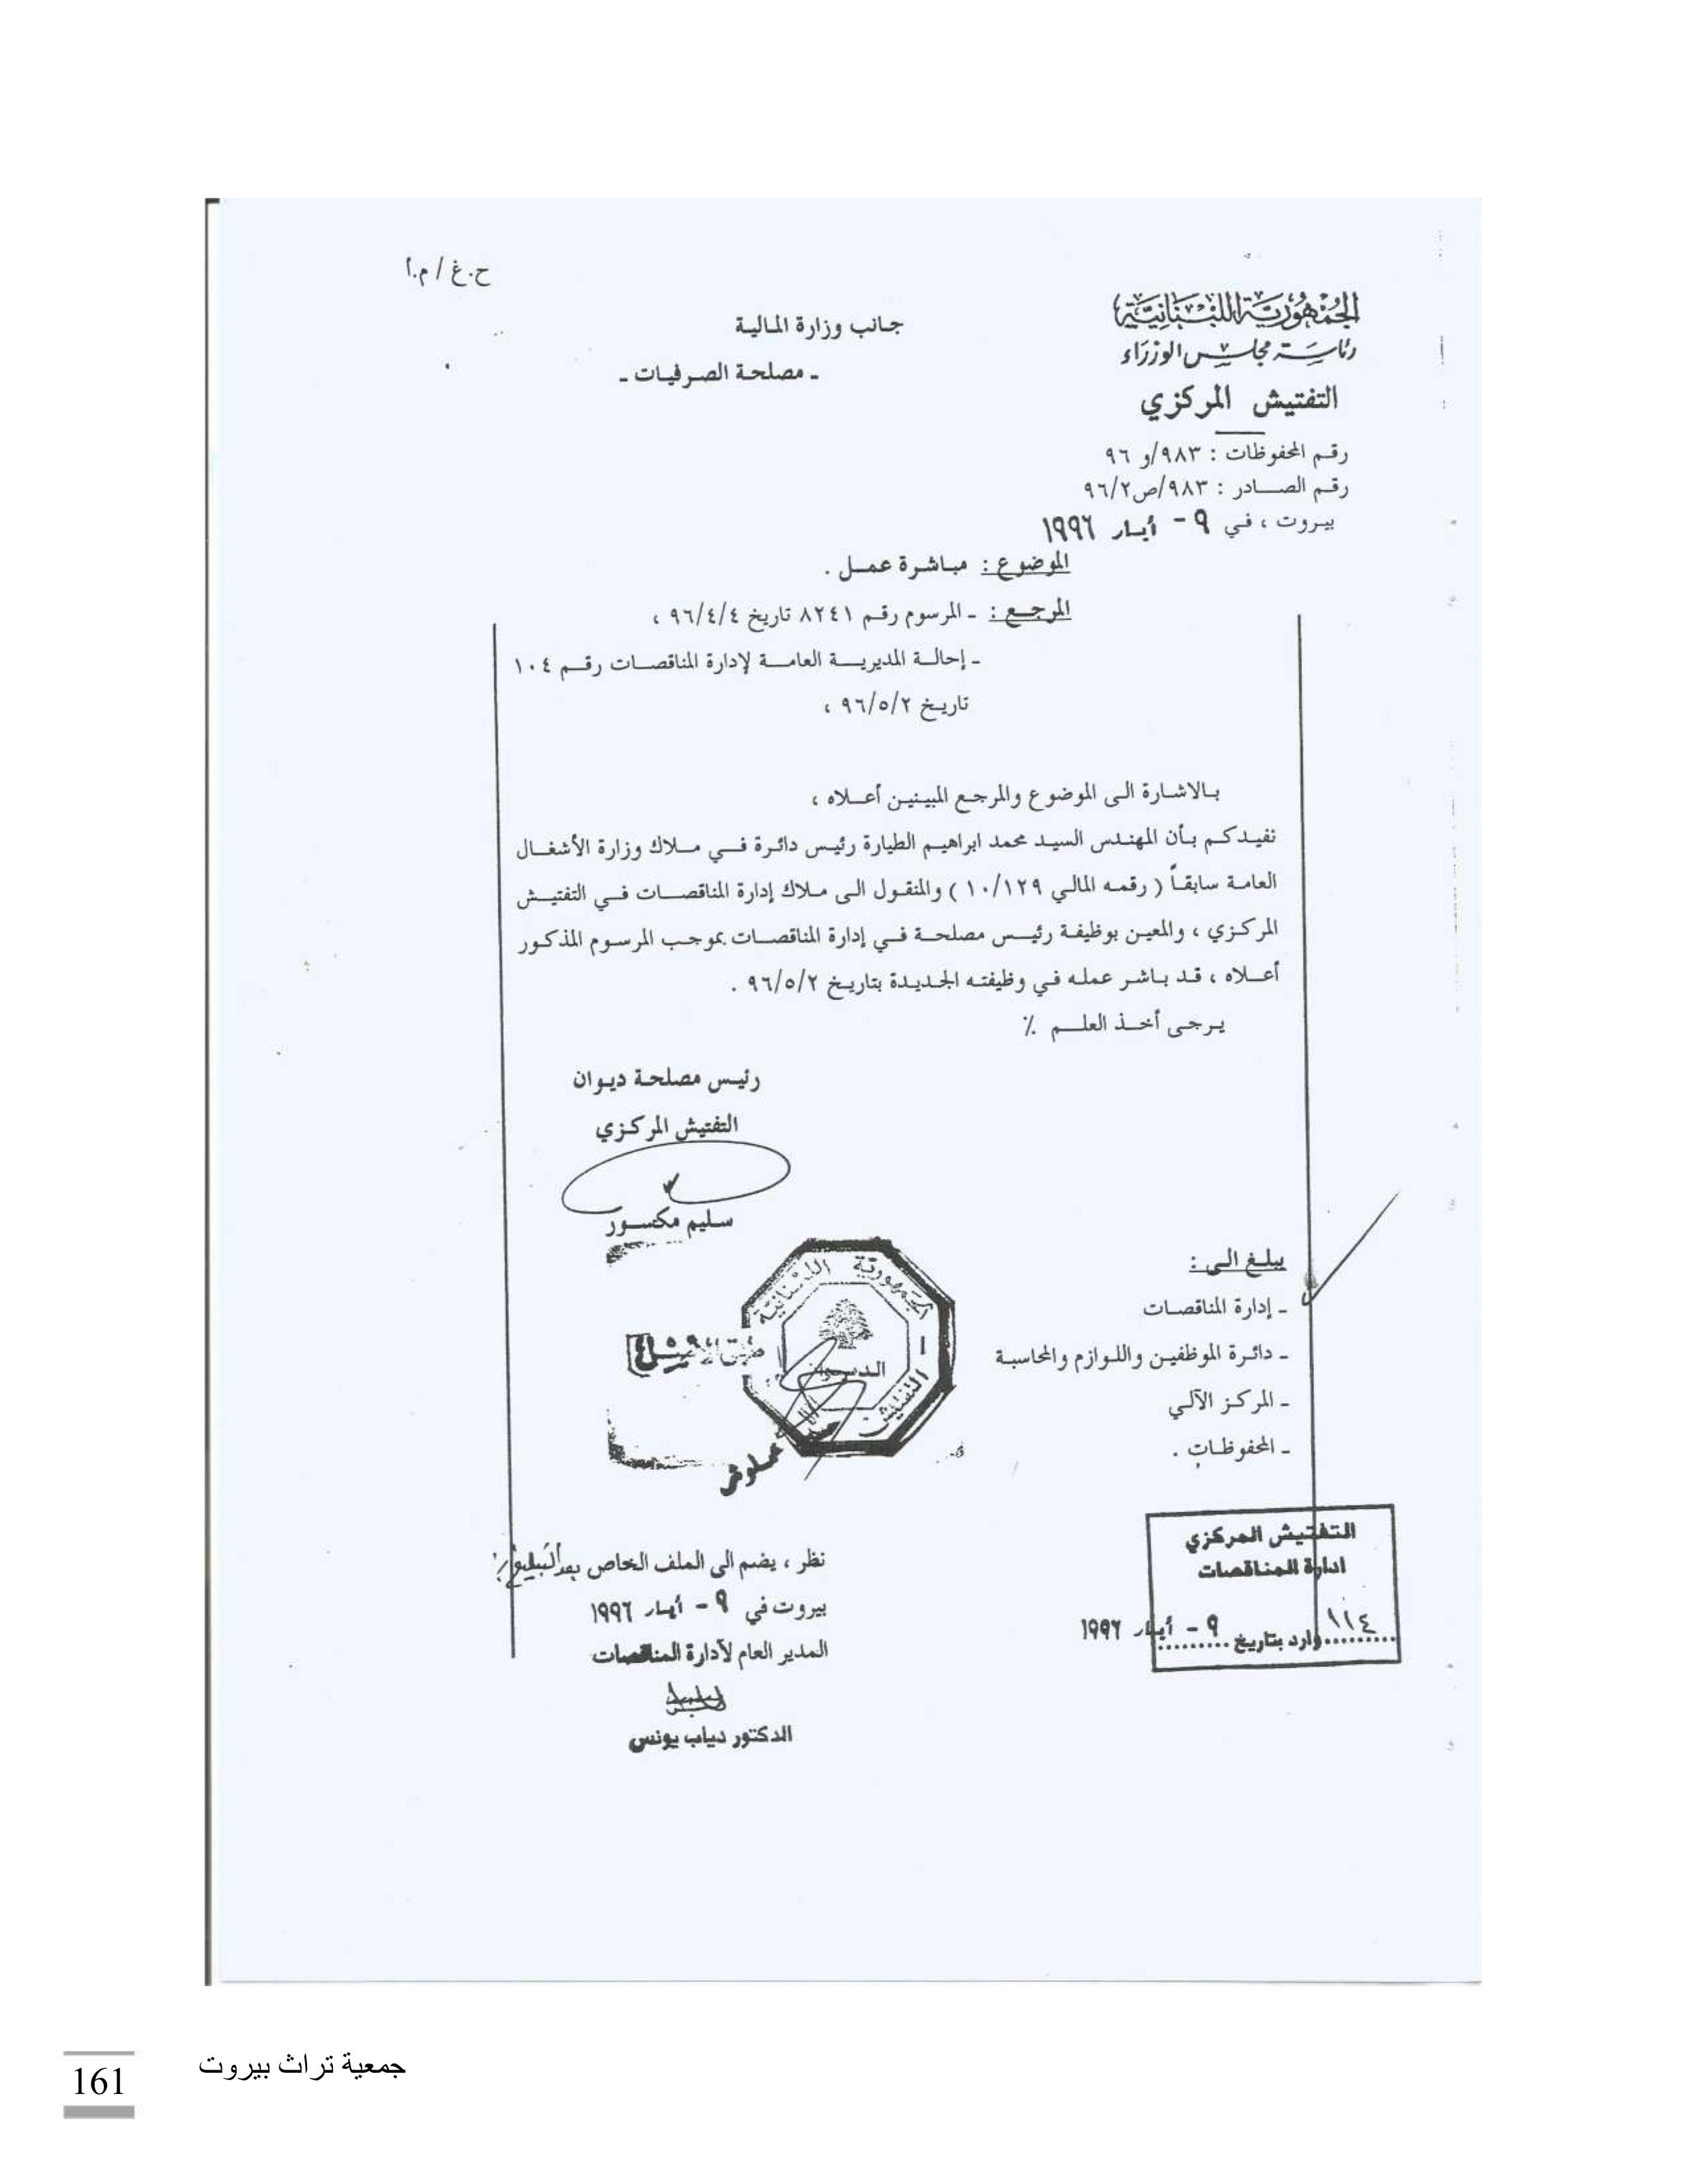 ح.غ / م.أ
الجمهورية اللبنانية
رئاسة مجلس الوزراء
التفتيش المركزي
جانب وزارة المالية
ـ مصلحة الصرفيات ـ
رقم المحفوظات : ٩٨٣/و ٩٦
رقم الصادر : ٩٨٣/ص٩٦/٢
بيروت ، في ٩ - أيار ١٩٩٦
الموضوع : مباشرة عمل .
المرجع : ـ المرسوم رقم ٨٢٤١ تاريخ ٩٦/٤/٤ ،
ـ إحالة المديرية العامة لإدارة المناقصات رقم ١٠٤
تاريخ ٩٦/٥/٢ ،
بالاشارة الى الموضوع والمرجع المبينين أعلاه ،
نفيدكم بأن المهندس السيد محمد ابراهيم الطيارة رئيس دائرة في ملاك وزارة الأشغال
العامة سابقاً ( رقمه المالي ١٠/١٢٩ ) والمنقول الى ملاك إدارة المناقصات في التفتيش
المركزي ، والمعين بوظيفة رئيس مصلحة في إدارة المناقصات بموجب المرسوم المذكور
أعلاه ، قد باشر عمله في وظيفته الجديدة بتاريخ ٩٦/٥/٢ .
يرجى أخذ العلم ٪
رئيس مصلحة ديوان
التفتيش المركزي
سليم مكسور
يبلغ الى :
ـ إدارة المناقصات
ـ دائرة الموظفين واللوازم والمحاسبة
ـ المركز الآلي
ـ المحفوظات .
الجمهورية اللبنانية
الديوان
التفتيش
التفتيش المركزي
ادارة المناقصات
١١٤ وارد بتاريخ ٩ - أيار ١٩٩٦
نظر ، يضم الى الملف الخاص بعد التبليغ
بيروت في ٩ - أيار ١٩٩٦
المدير العام لادارة المناقصات
الدكتور دياب يونس
جمعية تراث بيروت
161